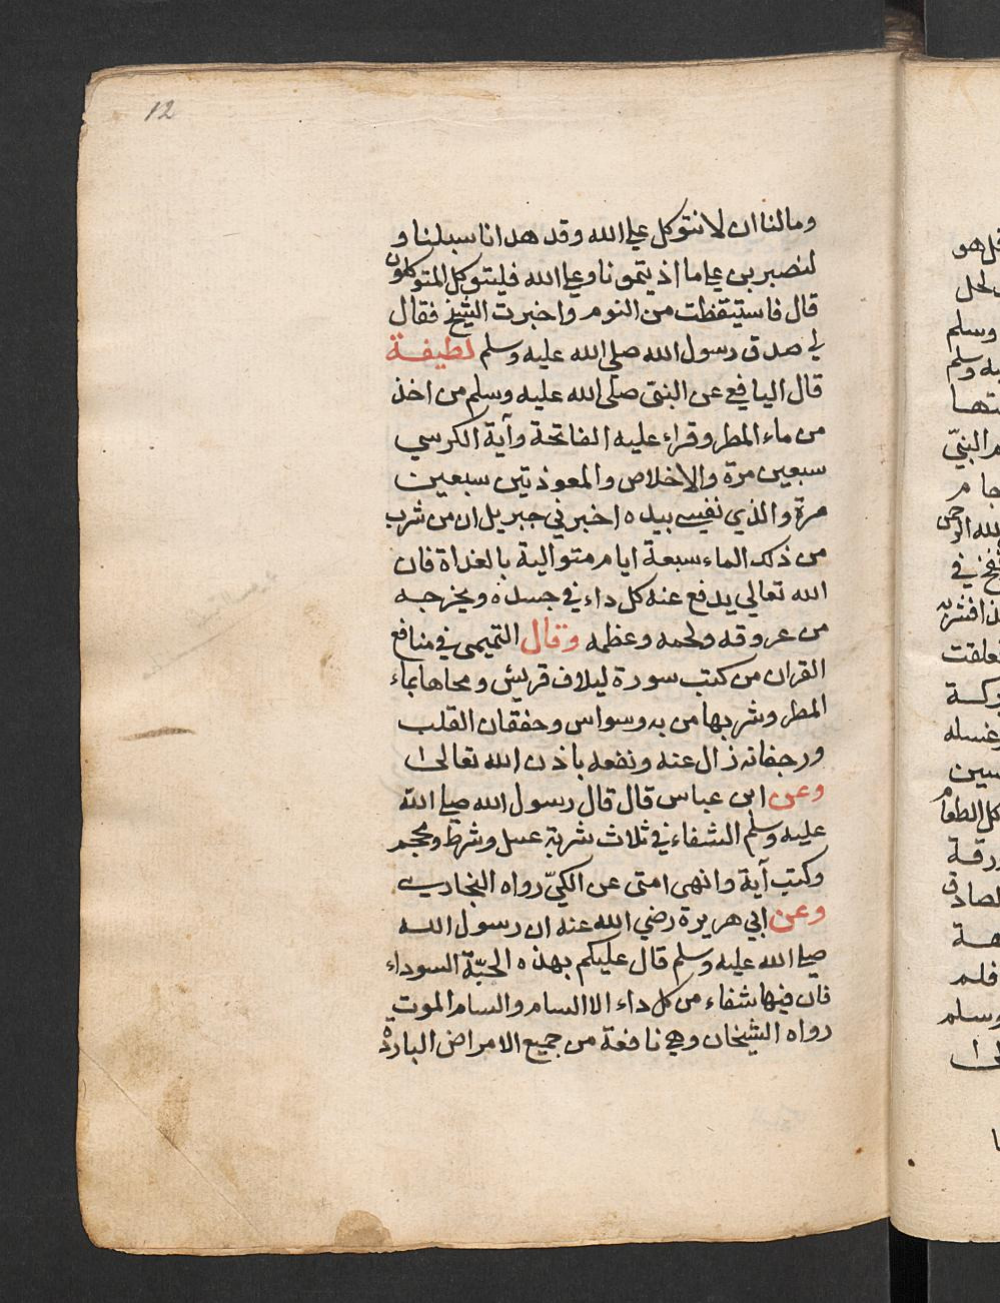 12
ومالنا ان لا نتوكل علي الله وقد هدانا سبلنا و
لنصبرن علي ما اذيتمونا وعلي الله فليتوكل المتوكلون
قال فاستيقظت من النوم واخبرت الشيخ فقال
لي صدق رسول الله صلي الله عليه وسلم لطيفة
قال اليافعي عن النبي صلي الله عليه وسلم من اخذ
من ماء المطر وقراء عليه الفاتحة وآية الكرسي
سبعين مرة والاخلاص والمعوذتين سبعين
مرة والذي نفسي بيده اخبرني جبريل ان من شرب
من ذلك الماء سبعة ايام متوالية بالغداة فان
الله تعالي يدفع عنه كل داء في جسده ويخرجه
من عروقه ولحمه وعظمه وقال التميمي في منافع
القران من كتب سورة ليلاف قريش ومحاها بماء
المطر وشربها من به وسواس وخفقان القلب
ورجفانه زال عنه ونفعه باذن الله تعالى
وعن ابن عباس قال قال رسول الله صلي الله
عليه وسلم الشفاء في ثلاث شربة عسل وشرطة محجم
وكتب آية وانهى امتى عن الكيّ رواه البخاري
وعن ابي هريرة رضي الله عنه ان رسول الله
صلي الله عليه وسلم قال عليكم بهذه الحبّة السوداء
فان فيها شفاء من كل داء الا السام والسام الموت
رواه الشيخان وهي نافعة من جميع الامراض الباردة